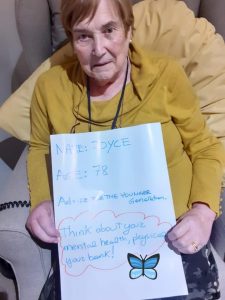 NAME: JOYCE
AGE: 78
Advice FOR THE YOUNGER
Generation.
Think about your
mental health, physical &
your bank!